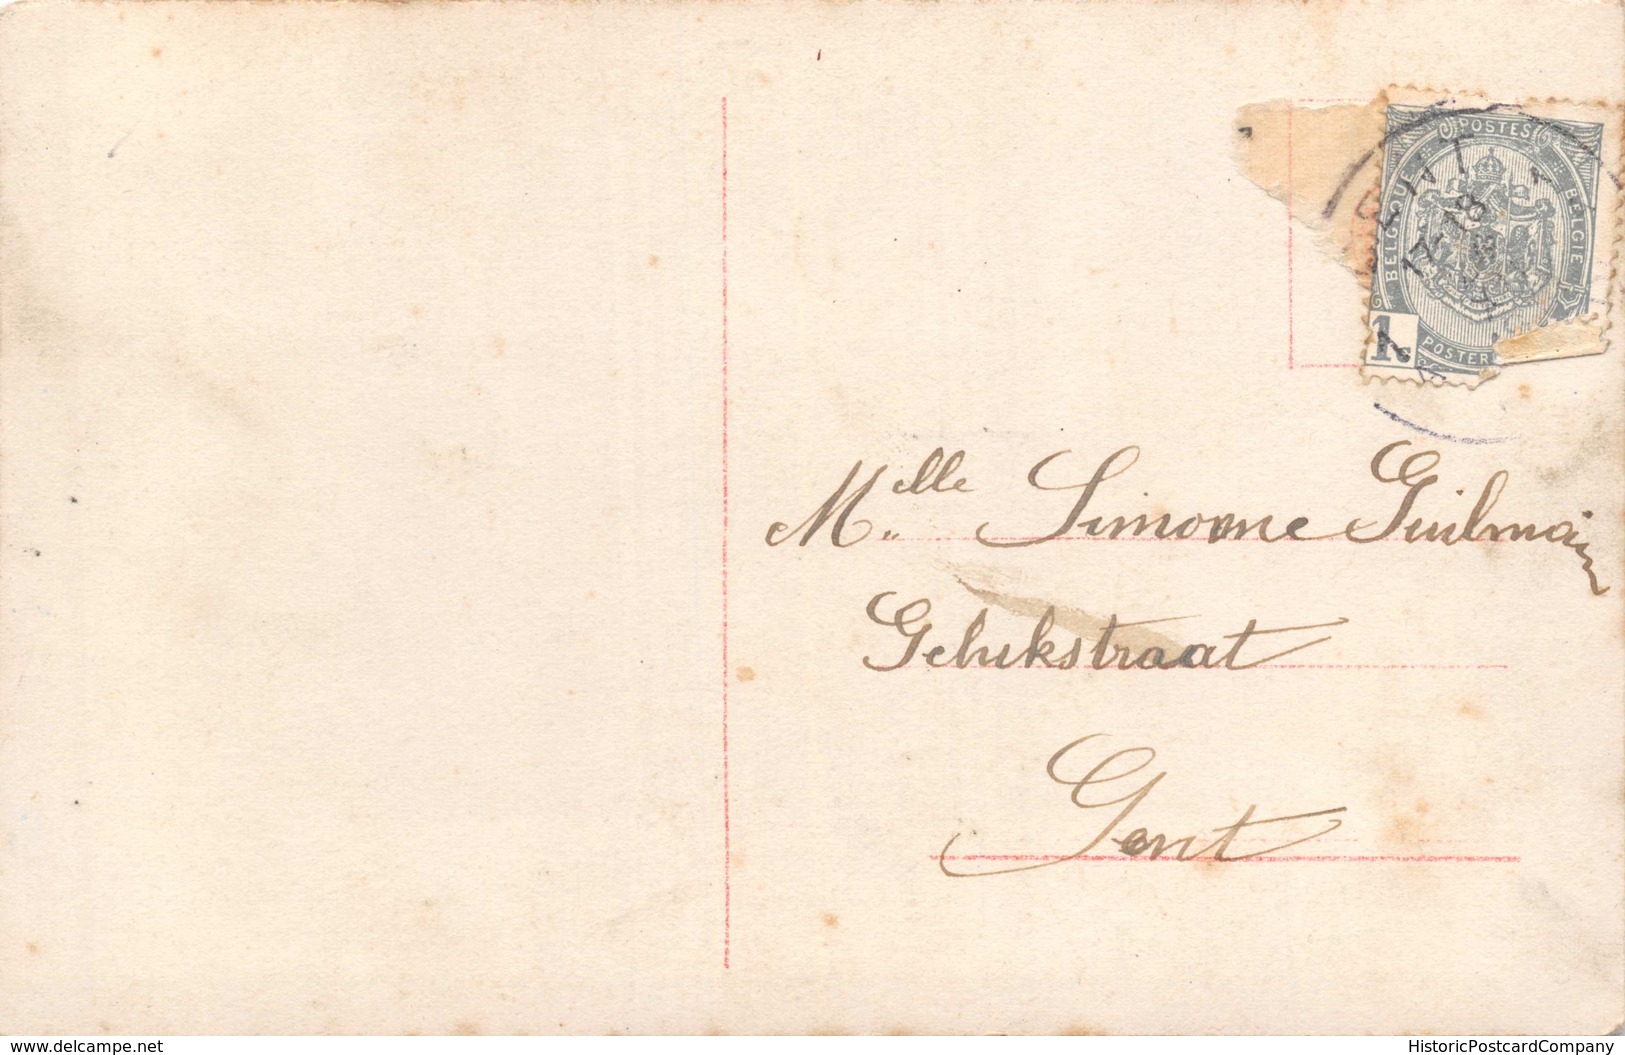 POSTES
BELGIQUE BELGIE
1c
POSTER
GENT
17-18
Melle Simonne Guilmain
Gelukstraat
Gent
www.delcampe.net HistoricPostcardCompany